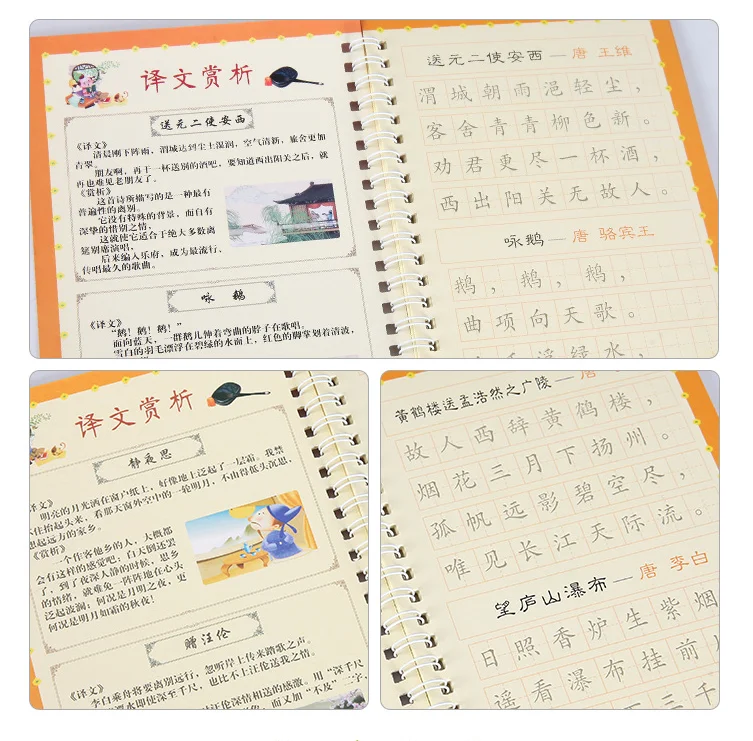 译文赏析
送元二使安西
《译文》
清晨刚下阵雨，渭城达到尘土湿润，空气清新，旅舍更加
青翠。
朋友啊，再干一杯送别的酒吧，要知道西出阳关之后，就
再也难见老朋友了。
《赏析》
这首诗所描写的是一种最有
普遍性的离别。
它没有特殊的背景，而自有
深挚的惜别之情，
这就使它适合于绝大多数离
筵别席演唱，
后来编入乐府，成为最流行、
传唱最久的歌曲。
咏 鹅
《译文》
“鹅！鹅！鹅！”
面向蓝天，一群鹅儿伸着弯曲的脖子在歌唱。
雪白的羽毛漂浮在碧绿的水面上，红色的脚掌划着清波，
送元二使安西 — 唐 王维
渭城朝雨浥轻尘，
客舍青青柳色新。
劝君更尽一杯酒，
西出阳关无故人。
咏鹅 — 唐 骆宾王
鹅，鹅，鹅，
曲项向天歌。
浮绿水，
译文赏析
静夜思
译文》
明亮的月光洒在窗户纸上，好像地上泛起了一层霜。我禁
不住抬起头来，看那天窗外空中的一轮明月，不由得低头沉思，
想起远方的家乡。
《赏析》
一个作客他乡的人，大概都
会有这样的感觉吧：白天倒还罢
了，到了夜深人静的时候，思乡
的情绪，就难免一阵阵地在心头
泛起波澜；何况是月明之夜，更
何况是明月如霜的秋夜！
赠汪伦
《译文》
李白乘舟将要离别远行，忽听岸上传来踏歌之声。
潭水即使深至千尺，也比不上汪伦送我之情。
深情相送的感激。用“深千尺
而又加“不及”二字，
黄鹤楼送孟浩然之广陵 — 唐
故人西辞黄鹤楼，
烟花三月下扬州。
孤帆远影碧空尽，
唯见长江天际流。
望庐山瀑布 — 唐 李白
日照香炉生紫烟
遥看瀑布挂前
三千